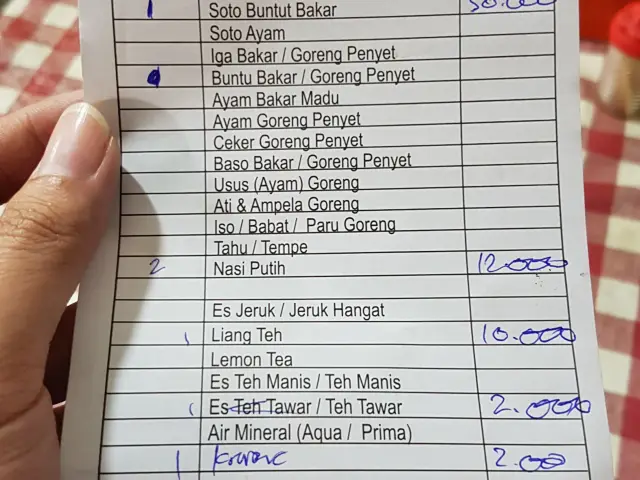 1 Soto Buntut Bakar
Soto Ayam
Iga Bakar / Goreng Penyet
Buntu Bakar / Goreng Penyet
Ayam Bakar Madu
Ayam Goreng Penyet
Ceker Goreng Penyet
Baso Bakar / Goreng Penyet
Usus (Ayam) Goreng
Ati & Ampela Goreng
Iso / Babat / Paru Goreng
Tahu / Tempe
2 Nasi Putih 12.000
Es Jeruk / Jeruk Hangat
1 Liang Teh 10.000
Lemon Tea
Es Teh Manis / Teh Manis
1 Es Teh Tawar / Teh Tawar 2.000
Air Mineral (Aqua / Prima)
1 2.00